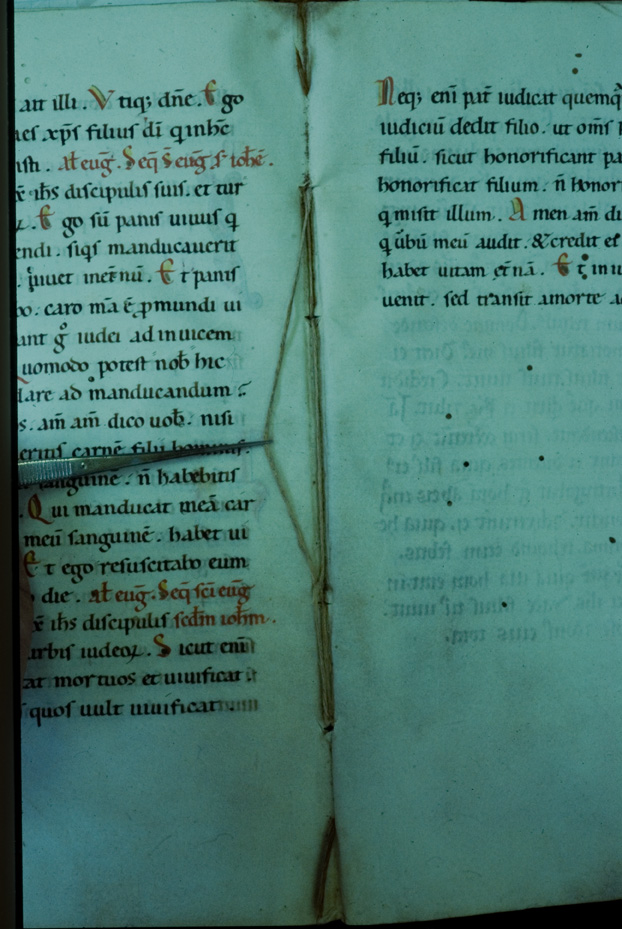 ait illi. Vtiq; dn̄e. Ego
xp̄s filius dī q inhē
. Al euḡ. Seq̄ s̄ euḡ. s̄ iohē.
ih̄s discipulis suis. et tur
. Ego sū panis uiuus q
endi. siq̄s manducauerit
. uiuet inet̄nū. Et panis
. caro m̄a ē. p̱ mundi ui
ant g̊ iudei adinuicem
uomodo potest nob̄ hic
dare ad manducandum ?
. am̄ am̄ dico uob̄. nisi
eritis carnē filii hominis
sanguinē. n̄ habebitis
. Qui manducat meā car
meū sanguinē. habet ui
Et ego resuscitabo eum
die. Al euḡ. Seq̄ sc̄i euḡ
ih̄s discipulis sedm̄ ioh̄m.
urbis iudeoꝝ. Sicut eni
at mortuos et uiuificat.
quos uult uiuificat.
Neq; eni pat̄ iudicat quemq̄
iudiciū dedit filio. ut om̄s
filiū. sicut honorificant pa
honorificat filium. n̄ honor
q misit illum. Amen am̄ di
q ūbū meū audit. & credit
habet uitam et̄nā. Et in iu
uenit. sed transit amorte a